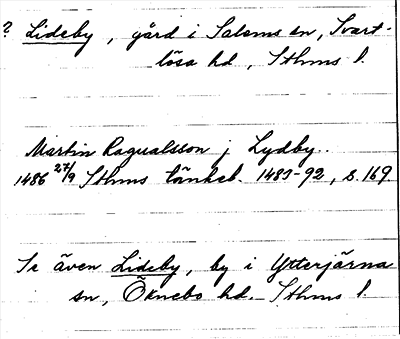 ? Lideby, gård i Salems sn, Svart-
lösa hd, Sthms l.
Martin Ragualsson j Lydby..
1486 27/9 Sthms tänkeb. 1483-92, s. 169
Se även Lideby, by i Ytterjärna
sn, Öknebo hd. Sthms l.